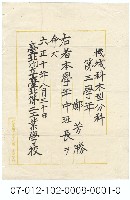 機械科木型分科
第二學年
鄭芳勝
右者本學年中班長ヲ
命ス
六年八月三十日
臺北州立臺北第二工業學校
07-012-102-0009-0001-0